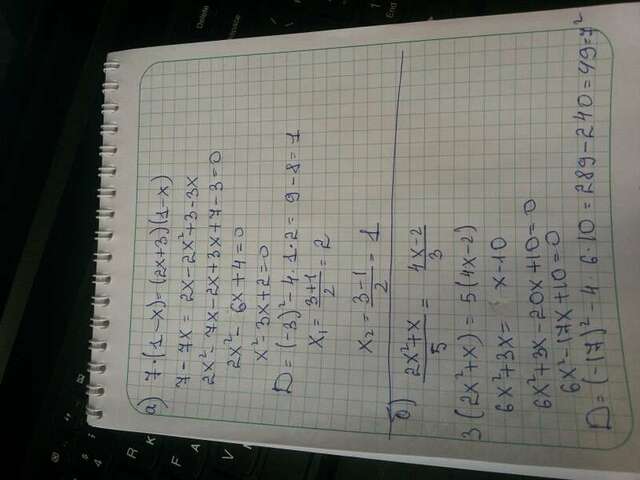 а) 7·(1-x)=(2x+3)(1-x)
7-7x=2x-2x²+3-3x
2x²-7x-2x+3x+7-3=0
2x²-6x+4=0
x²-3x+2=0
D=(-3)²-4·1·2=9-8=1
x₁=(3+1)/2=2
x₂=(3-1)/2=1
б) (2x²+x)/5=(4x-2)/3
3(2x²+x)=5(4x-2)
6x²+3x= x-10
6x²+3x-20x+10=0
6x²-17x+10=0
D=(-17)²-4·6·10=289-240=49=7²
Delete
End
R
K
F
A
V